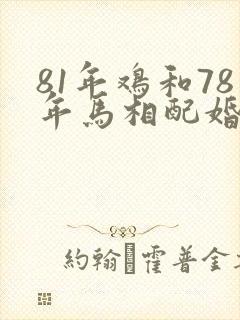 81年鸡和78
年馬相配婚
約翰 霍普金